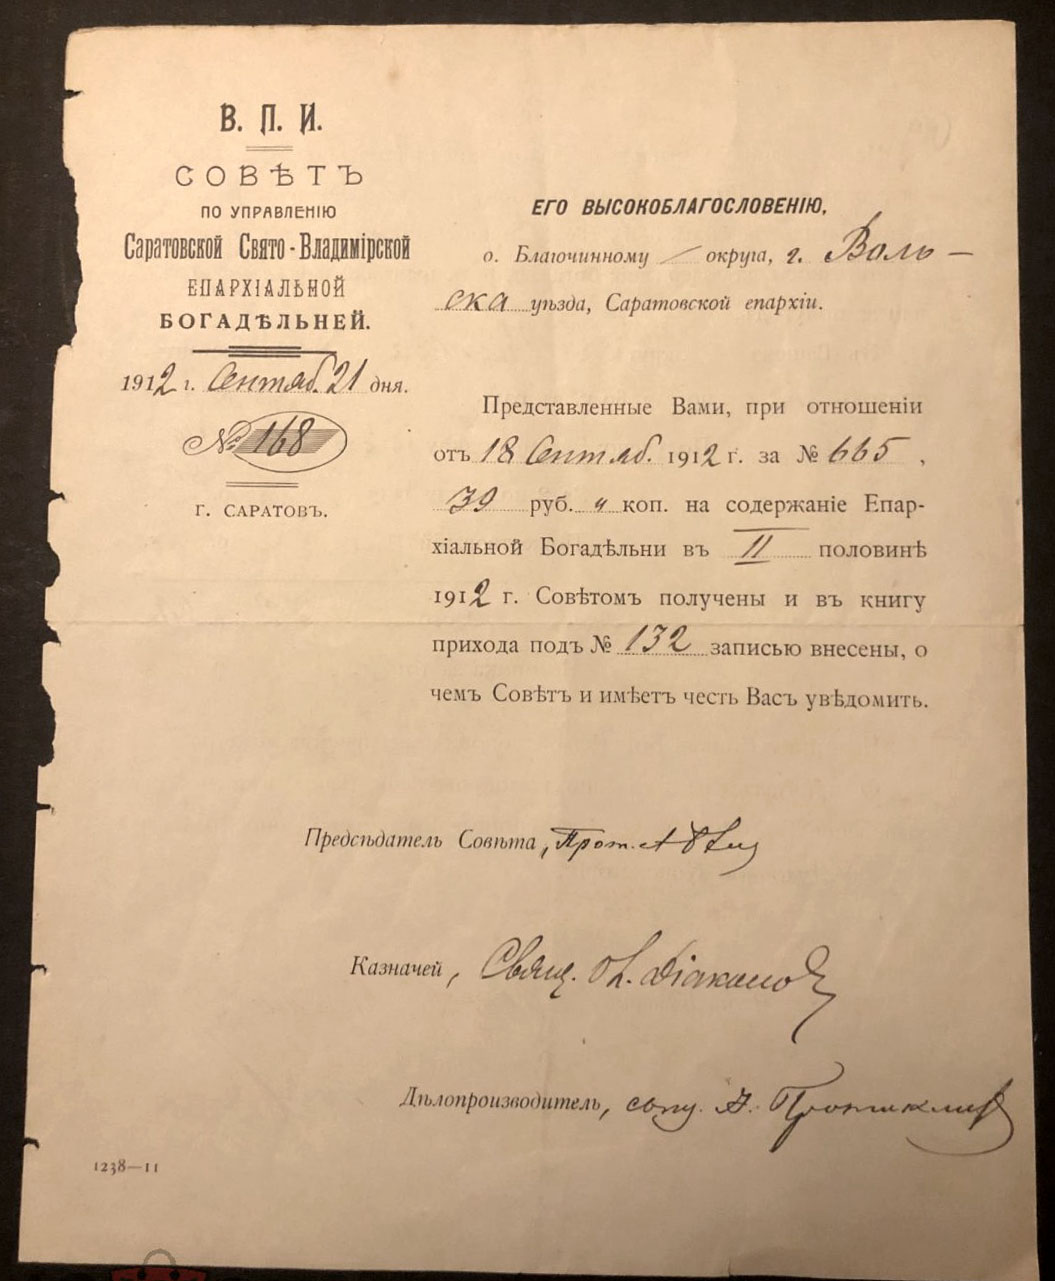 В. П. И.
СОВѢТЪ
ПО УПРАВЛЕНІЮ
Саратовской Свято-Владимірской
ЕПАРХІАЛЬНОЙ
БОГАДѢЛЬНЕЙ.
1912 г. Сентяб. 21 дня.
№ 168
Г. САРАТОВЪ.
ЕГО ВЫСОКОБЛАГОСЛОВЕНІЮ,
о. Благочинному — округа, г. Воль-
ска уѣзда, Саратовской епархіи.
Представленные Вами, при отношеніи
отъ 18 Сентяб. 1912 г. за № 665,
39 руб. „ коп. на содержаніе Епар-
хіальной Богадѣльни въ II половинѣ
1912 г. Совѣтомъ получены и въ книгу
прихода подъ № 132 записью внесены, о
чемъ Совѣтъ и имѣетъ честь Васъ увѣдомить.
Предсѣдатель Совѣта, Прот.
Казначей, Свящ. Діаконов
Дѣлопроизводитель,
1238—11